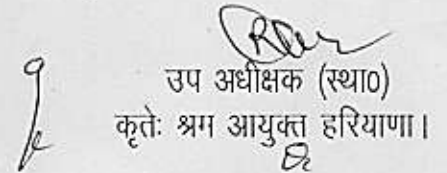 उप अधीक्षक (स्था०)
कृतेः श्रम आयुक्त हरियाणा।